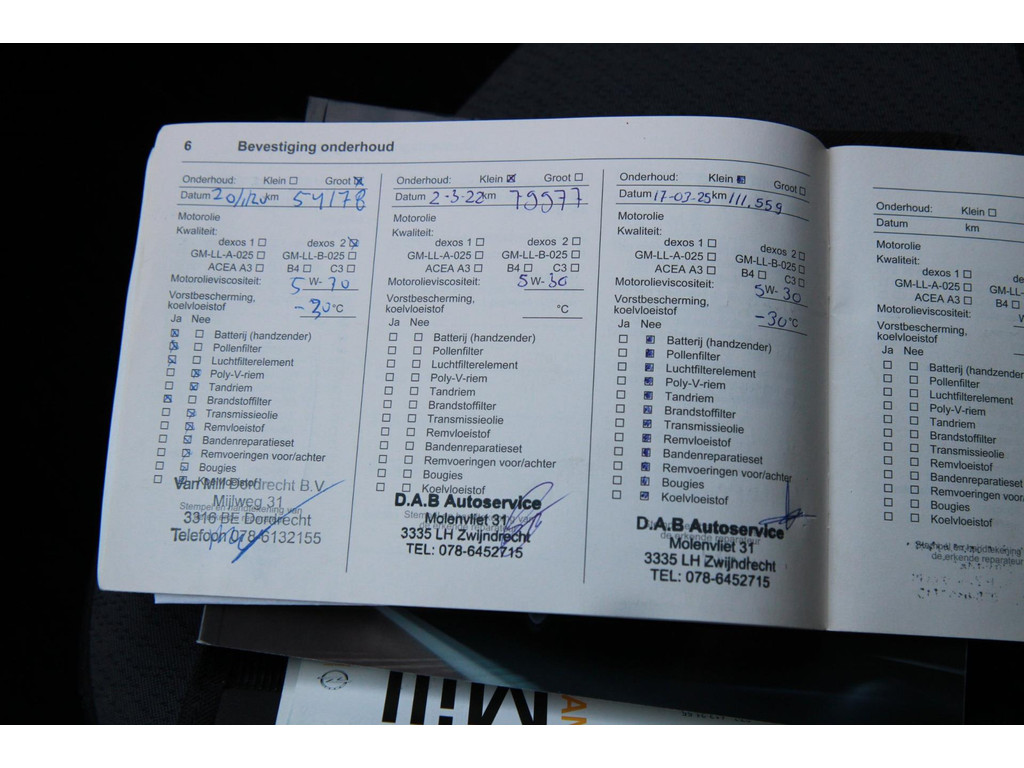 6 Bevestiging onderhoud
Onderhoud: Klein ☐ Groot ☒
Datum 20/1/20 km 54178
Motorolie
Kwaliteit:
dexos 1 ☐ dexos 2 ☒
GM-LL-A-025 ☐ GM-LL-B-025 ☐
ACEA A3 ☐ B4 ☐ C3 ☐
Motorolieviscositeit: 5 W- 30
Vorstbescherming,
koelvloeistof -30 °C
Ja Nee
☒ ☐ Batterij (handzender)
☒ ☐ Pollenfilter
☒ ☐ Luchtfilterelement
☐ ☒ Poly-V-riem
☐ ☒ Tandriem
☒ ☐ Brandstoffilter
☐ ☒ Transmissieolie
☐ ☒ Remvloeistof
☐ ☒ Bandenreparatieset
☐ ☒ Remvoeringen voor/achter
☐ ☒ Bougies
☐ ☒ Koelvloeistof
Van Mill Dordrecht B.V.
Mijlweg 31
Stempel en handtekening van
3316 BE Dordrecht
Telefoon 078-6132155
Onderhoud: Klein ☒ Groot ☐
Datum 2-3-22 km 79977
Motorolie
Kwaliteit:
dexos 1 ☐ dexos 2 ☐
GM-LL-A-025 ☐ GM-LL-B-025 ☐
ACEA A3 ☐ B4 ☐ C3 ☐
Motorolieviscositeit: 5 W- 30
Vorstbescherming,
koelvloeistof °C
Ja Nee
☐ ☐ Batterij (handzender)
☐ ☐ Pollenfilter
☐ ☐ Luchtfilterelement
☐ ☐ Poly-V-riem
☐ ☐ Tandriem
☐ ☐ Brandstoffilter
☐ ☐ Transmissieolie
☐ ☐ Remvloeistof
☐ ☐ Bandenreparatieset
☐ ☐ Remvoeringen voor/achter
☐ ☐ Bougies
☐ ☐ Koelvloeistof
D.A.B Autoservice
Molenvliet 31
3335 LH Zwijndrecht
TEL: 078-6452715
Onderhoud: Klein ☒ Groot ☐
Datum 17-03-25 km 111.559
Motorolie
Kwaliteit:
dexos 1 ☐ dexos 2 ☐
GM-LL-A-025 ☐ GM-LL-B-025 ☐
ACEA A3 ☐ B4 ☐ C3 ☐
Motorolieviscositeit: 5 W- 30
Vorstbescherming,
koelvloeistof -30 °C
Ja Nee
☐ ☒ Batterij (handzender)
☐ ☒ Pollenfilter
☐ ☒ Luchtfilterelement
☐ ☒ Poly-V-riem
☐ ☒ Tandriem
☐ ☒ Brandstoffilter
☐ ☒ Transmissieolie
☐ ☒ Remvloeistof
☐ ☒ Bandenreparatieset
☐ ☒ Remvoeringen voor/achter
☐ ☒ Bougies
☐ ☒ Koelvloeistof
D.A.B Autoservice
Molenvliet 31
3335 LH Zwijndrecht
TEL: 078-6452715
Onderhoud: Klein ☐
Datum km
Motorolie
Kwaliteit:
dexos 1 ☐
GM-LL-A-025 ☐ GM-LL-
ACEA A3 ☐ B4 ☐
Motorolieviscositeit:
Vorstbescherming,
koelvloeistof
Ja Nee
☐ ☐ Batterij (handzender
☐ ☐ Pollenfilter
☐ ☐ Luchtfilterelement
☐ ☐ Poly-V-riem
☐ ☐ Tandriem
☐ ☐ Brandstoffilter
☐ ☐ Transmissieolie
☐ ☐ Remvloeistof
☐ ☐ Bandenreparatieset
☐ ☐ Remvoeringen voor/
☐ ☐ Bougies
☐ ☐ Koelvloeistof
Stempel en handtekening
de erkende reparateur
Mill
AN